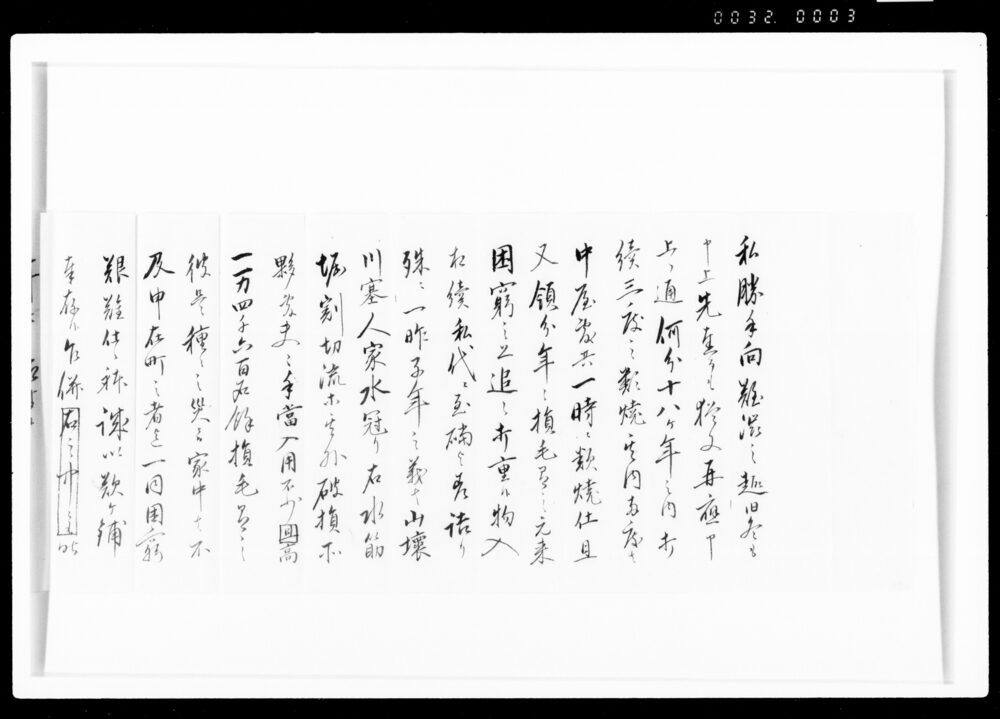 0032. 0003
私勝手向難渋之趣旧冬も
申上先達而も猶又再應申
上候通何分十八ヶ年之内打
続三度之類焼其内両度者
中屋敷共一時ニ類焼仕且
又領分年々損毛有之元来
困窮之上追々打重候物入
相続私代ニ至礑与差詰り
殊ニ一昨子年之義者山壊
川塞人家水冠り右水筋
堀割切流末其外破損所
夥敷夫々手當入用不少田高
一万四千六百石餘損毛有之
彼是種々之災ニ家中者不
及申在町之者迄一同困窮
艱難仕候訳誠以歎ヶ鋪
奉存候乍併右之中ニも